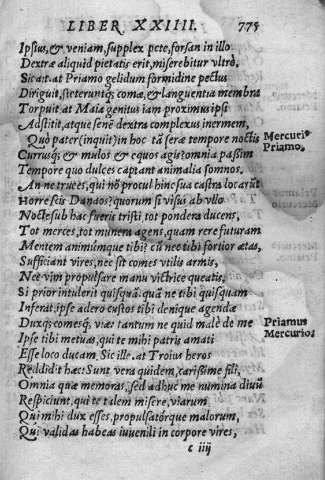 LIBER XXIIII. 775
Ipsius, & veniam, supplex pete, forsan in illo
Dextræ aliquid pietatis erit, miserebitur vltrò.
Sic ait. at Priamo gelidum formidine pectus
Diriguit, steteruntq; comæ, & languentia membra
Torpuit at Maia genitus iam proximus ipsi
Adstitit, atque senẽ dextra complexus inermem,
Quo pater (inquit) in hoc tã sera tempore noctis
Mercurius Priamo.
Currusq; & mulos & equos agis? omnia passim
Tempore quo dulces captant animalia somnos.
An ne truces, qui nõ procul hinc sua castra locarũt
Horrescis Danaos? quorum si visus ab vllo
Nocte sub hac fueris tristi tot pondera ducens,
Tot merces, tot munera agens, quam rere futuram
Mentem animúmque tibi? cũ nec tibi fortior ætas,
Sufficiant vires, nec sit comes vtilis armis,
Nec vim propulsare manu victrice queatis,
Si prior intulerit quisquã. quã ne tibi quisquam
Inferat. ipse adero custos tibi denique agendæ
Duxq; comesq; viæs tantum ne quid malè de me
Priamus Mercurio.
Ipse tibi metuas, qui te mihi patris amati
Esse loco ducam. Sic ille. at Troius heros
Reddidit hæc: Sunt vera quidem, carissime fili,
Omnia quæ memoras, sed adhuc me numina diuũ
Respiciunt, qui te talem misere, viarum
Qui mihi dux esses, propulsatórque malorum,
Qui validas habeas iuuenili in corpore vires,
c iiij